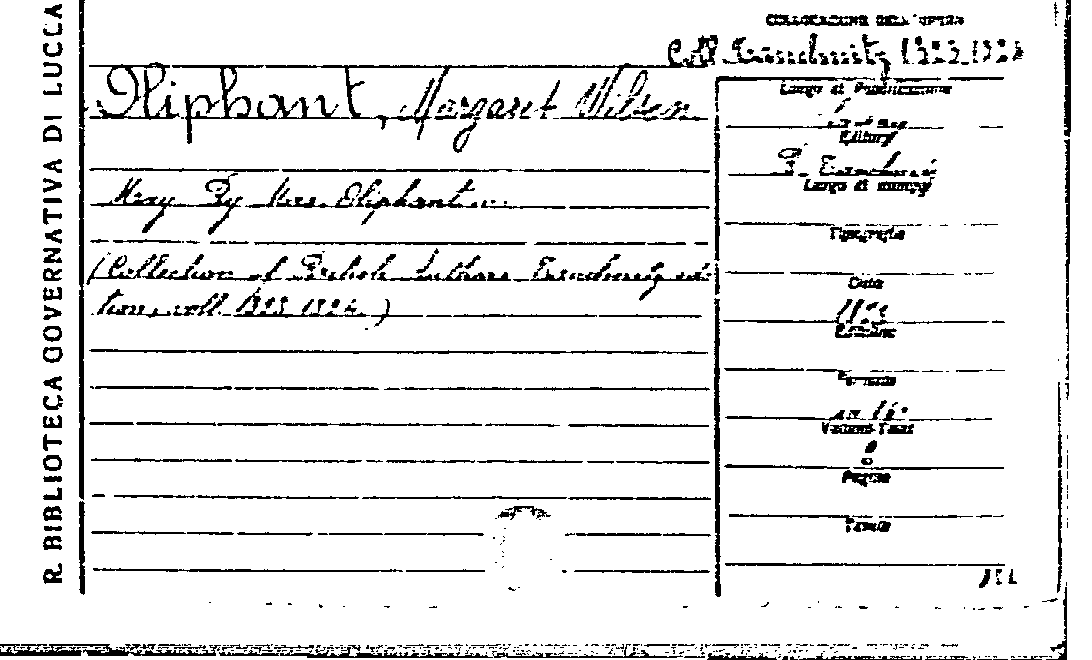 R. BIBLIOTECA GOVERNATIVA DI LUCCA
COLLOCAZIONE DELL'OPERA
Coll. Tauchnitz
Oliphant, Margaret Wilson
May By Mrs. Oliphant...
(Collection of British Authors Tauchnitz edi-
tion, coll. 1323 1324.)
Luogo di Pubblicazione
Editore
B. Tauchnitz
Luogo di stampa
Tipografia
Data
Edizione
Formato
in 16°
Volumi-Tomi
2
Pagine
Tavole